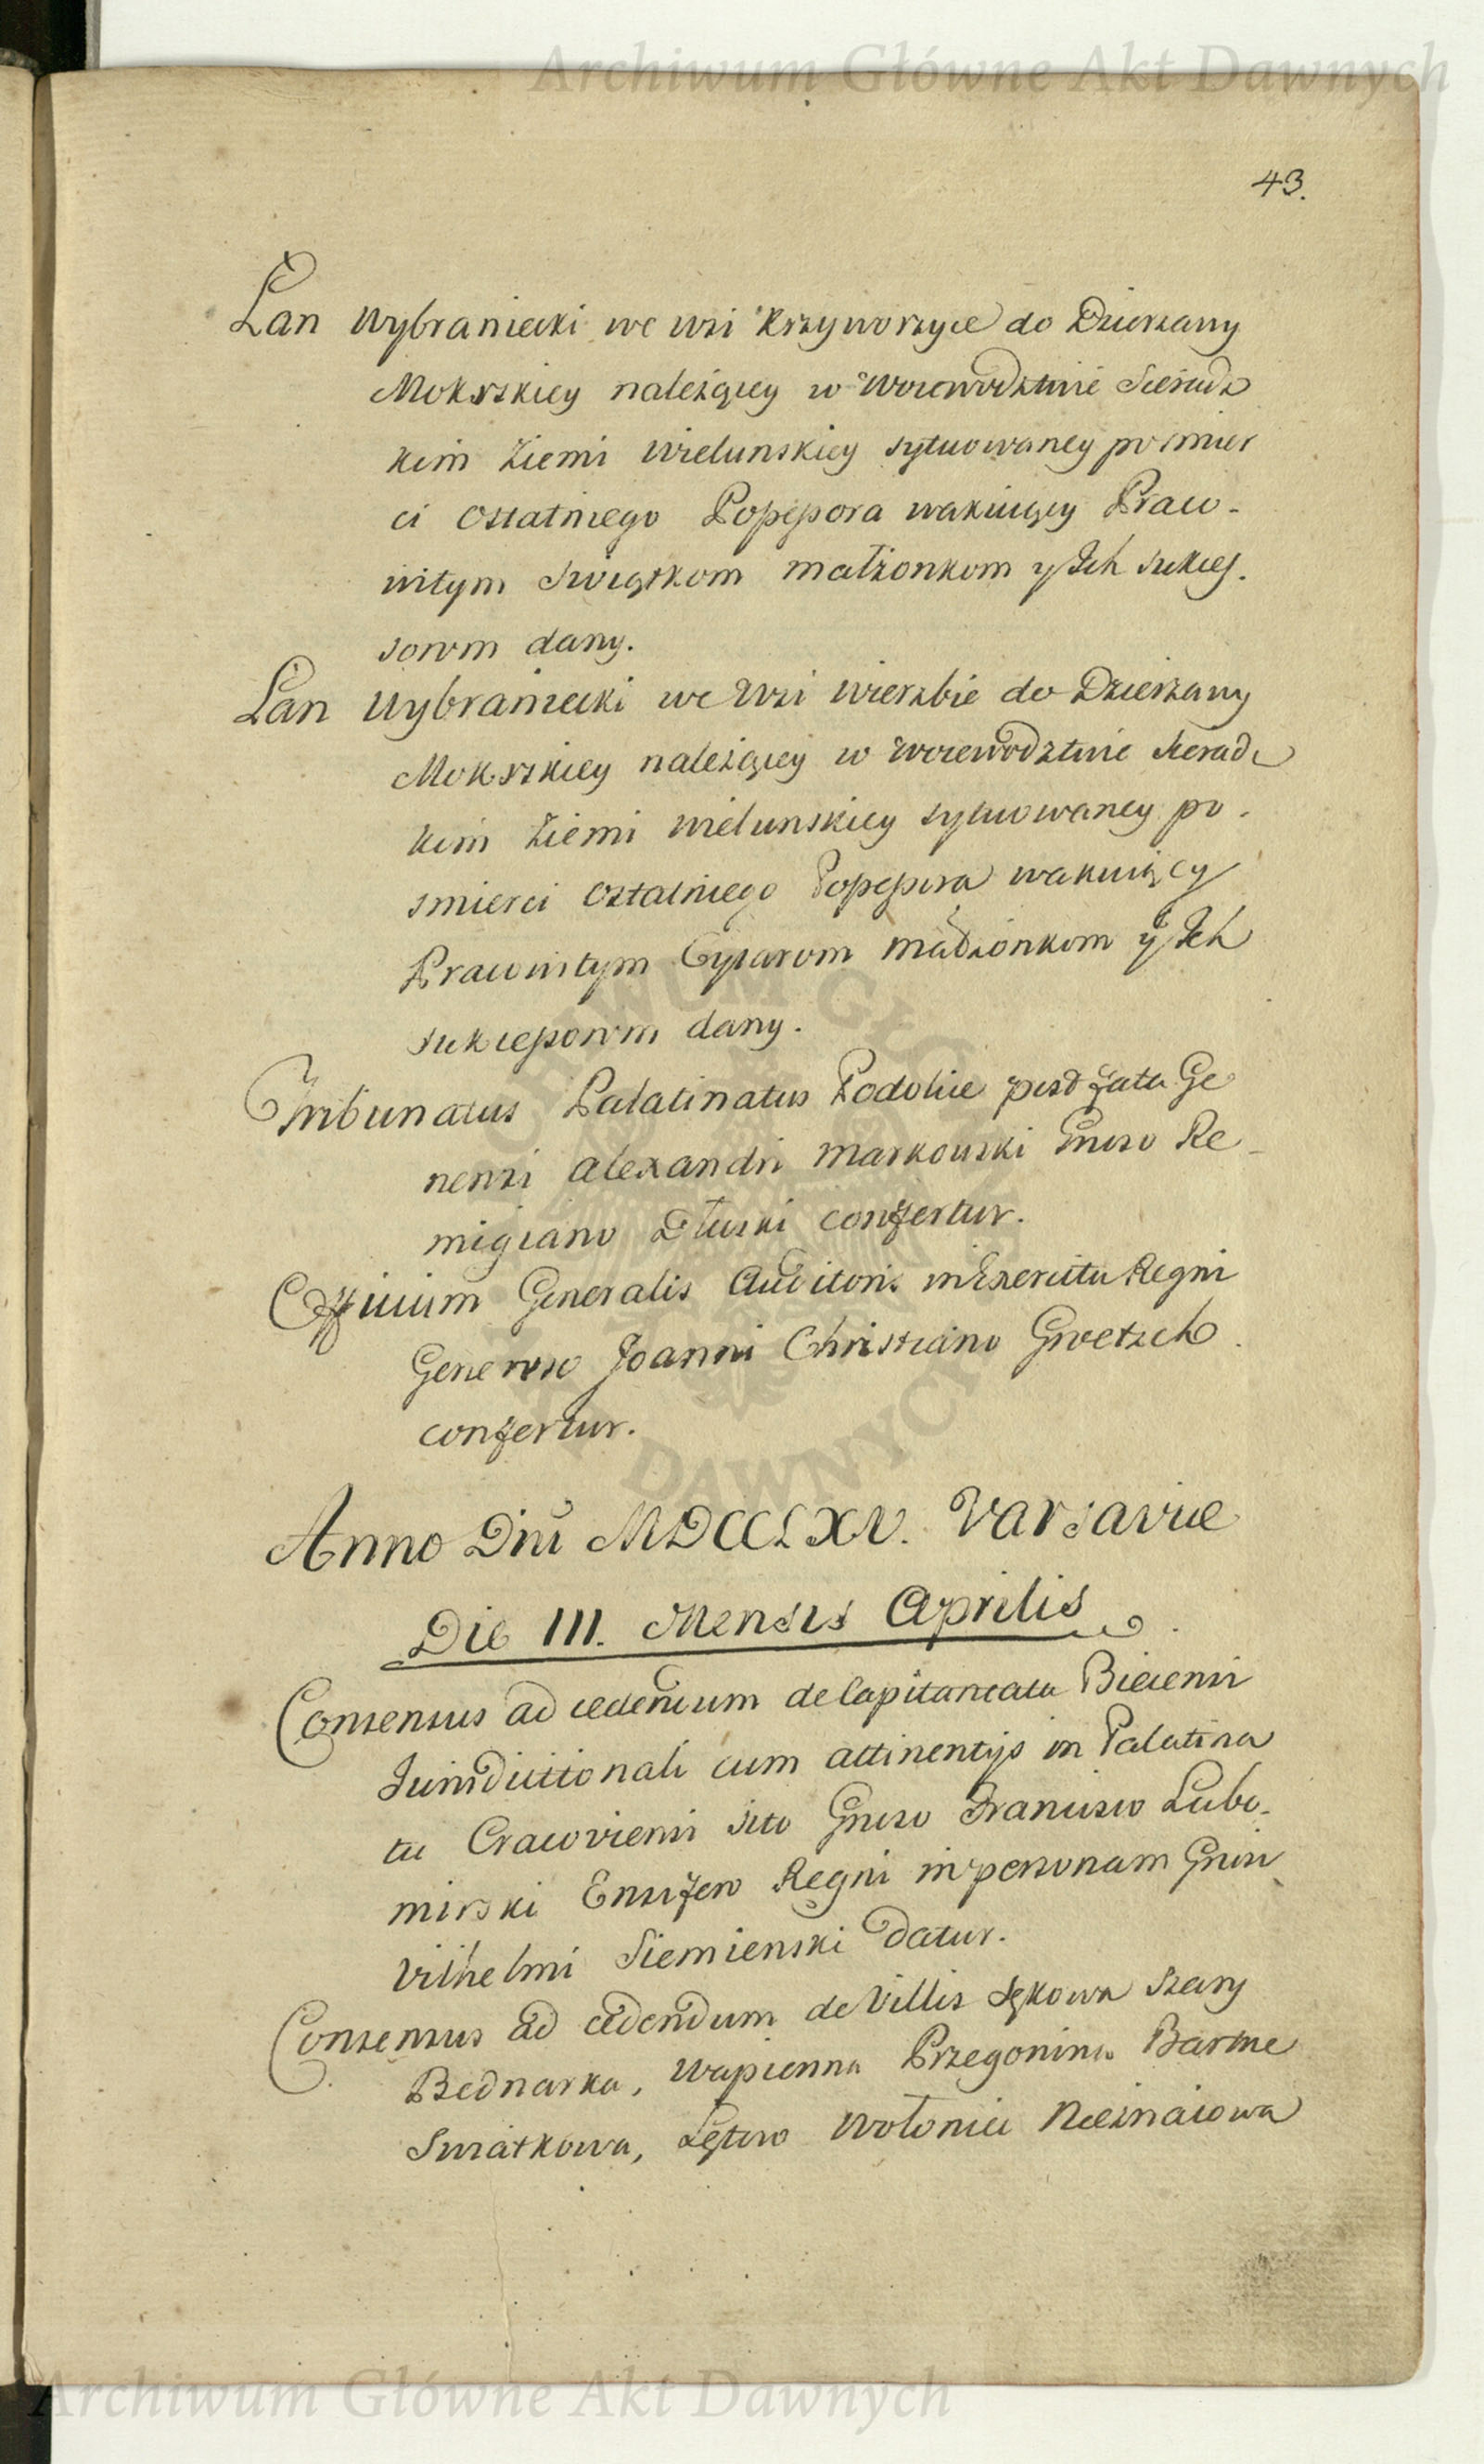 Archiwum Główne Akt Dawnych
43.
Łan Wybraniecki we wsi Krzyworzyce do Dzierżawy
Mokrskiey należącey w Woiewodztwie Sieradz
kim Ziemi Wielunskiey sytuowaney po smier
ci ostatniego Possessora wakuiący Praco-
witym Swiątkom małżonkom y Ich sukces-
sorom dany.
Łan Wybraniecki we Wsi Wierzbie do Dzierżawy
Mokrskiey należącey w Woiewodztwie Sieradz
kim Ziemi Wielunskiey sytuowaney po-
smierci Ostatniego Possessora wakuiący
Pracowitym małżonkom y Ich
sukcessorom dany.
Tribunatus Palatinatus Podoliae post fata Ge
nerosi Alexandri Markowski Gnroso Re-
migiano Dłuski confertur.
Officium Generalis Auditoris in Exercitu Regni
Generoso Joanni Christiano Groetsch
confertur.
Anno Dni MDCCLXV. Varsaviae
Die III. Mensis Aprilis
Consensus ad cedendum de Capitaneatu Biecensi
Jurisdictionali cum attinentijs in Palatina
tu Cracoviensi sito Gnroso Francisco Lubo-
mirski Ensifero Regni in personam Gnrosi
Vilhelmi Siemienski datur.
Consensus ad cedendum de Villis Sękowa Siary
Bednarka, Wapienna Przegonina Bartne
Swiatkowa, Wołowiec Nieznaiowa
ARCHIWUM GŁÓWNE AKT DAWNYCH
Archiwum Główne Akt Dawnych